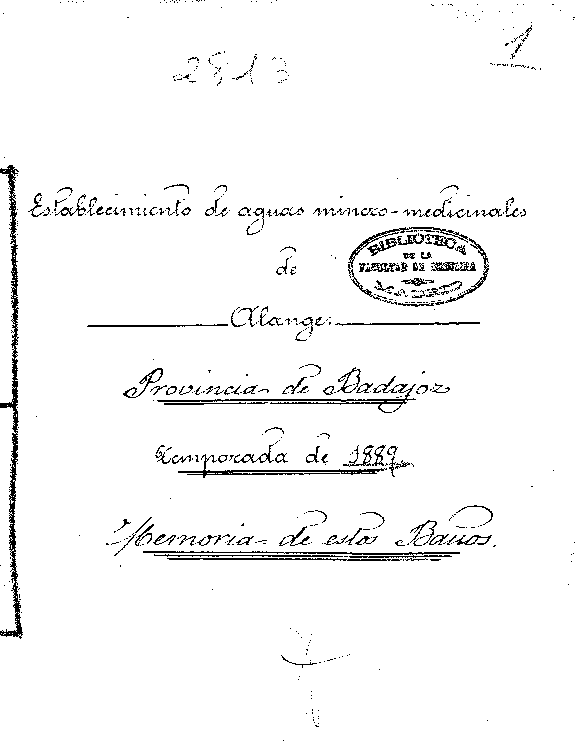 1
2813
Establecimiento de aguas minero-medicinales
de
BIBLIOTECA
DE LA
FACULTAD DE MEDICINA
MADRID
Alange:
Provincia de Badajoz
Temporada de 1889.
Memoria de estos Baños.